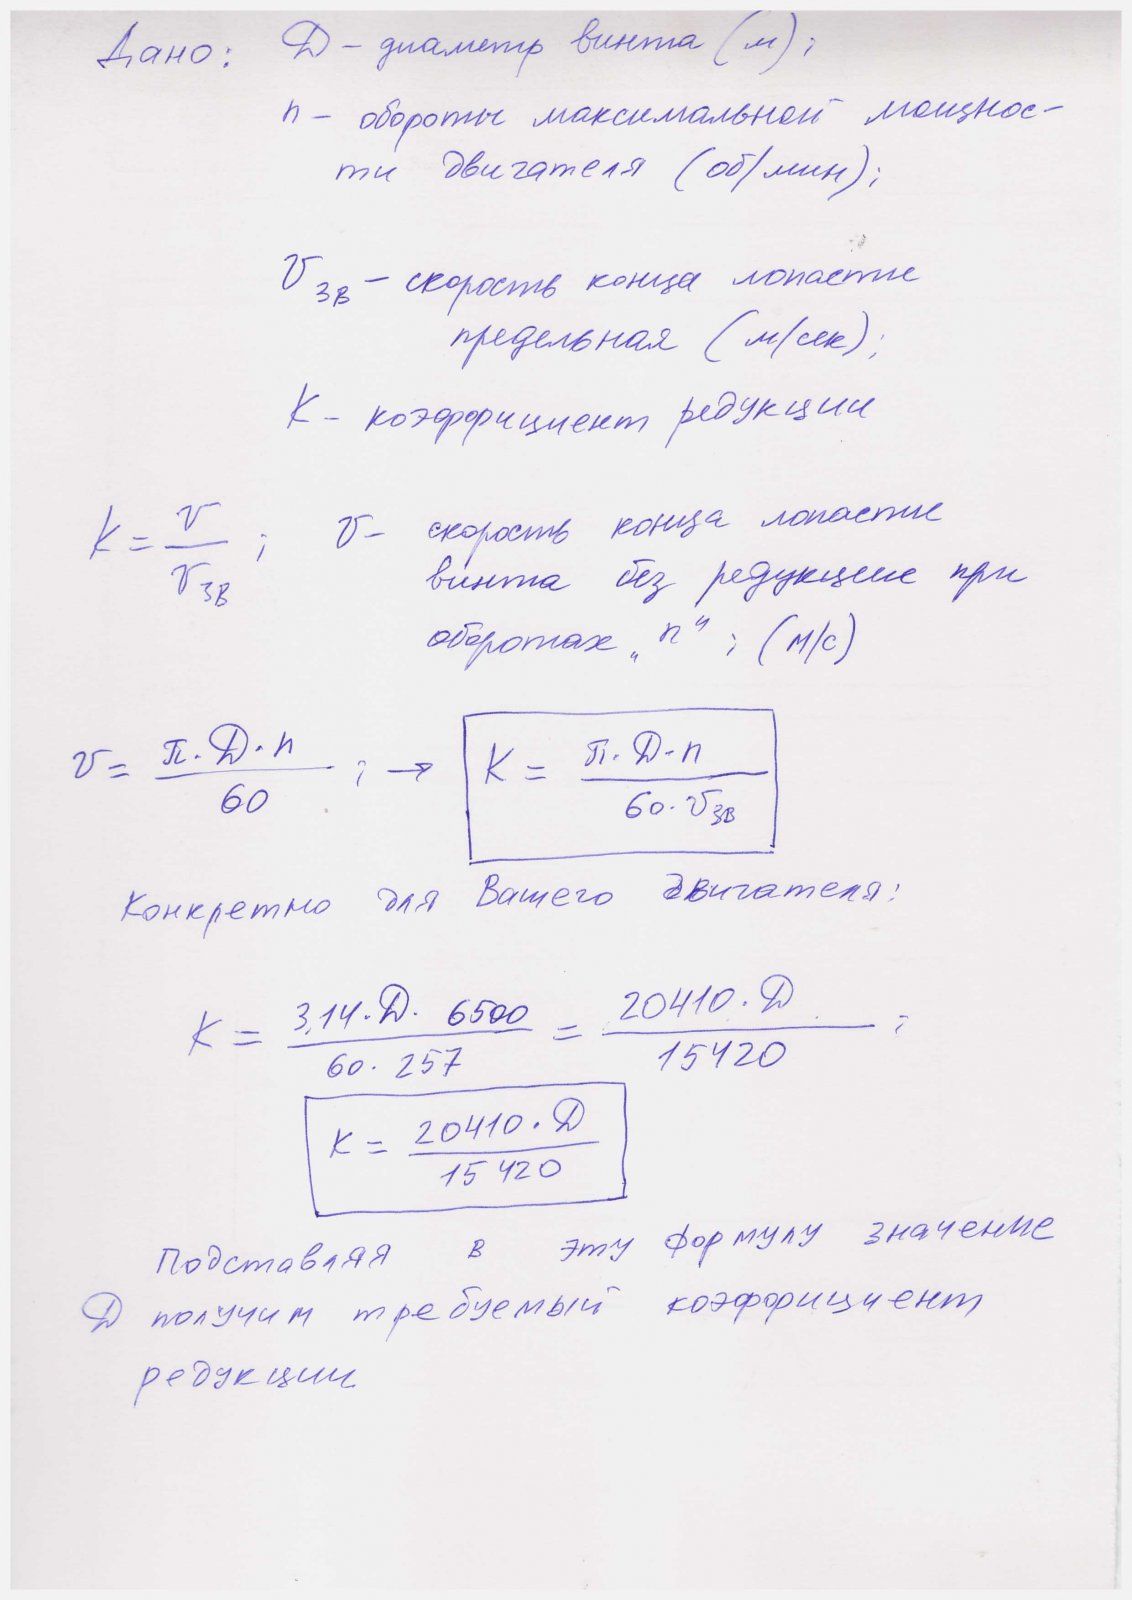 Дано: D – диаметр винта (м);
n – обороты максимальной мощнос-
ти двигателя (об/мин);
V зв – скорость конца лопасти
предельная (м/сек);
K – коэффициент редукции
K = V / V зв ; V – скорость конца лопасти
винта без редукции при
оборотах „n"; (м/с)
V = π·D·n / 60 ; → K = π·D·n / 60·V зв
Конкретно для Вашего двигателя:
K = 3,14·D·6500 / 60·257 = 20410·D / 15420 ;
K = 20410·D / 15420
Подставляя в эту формулу значение
D получим требуемый коэффициент
редукции